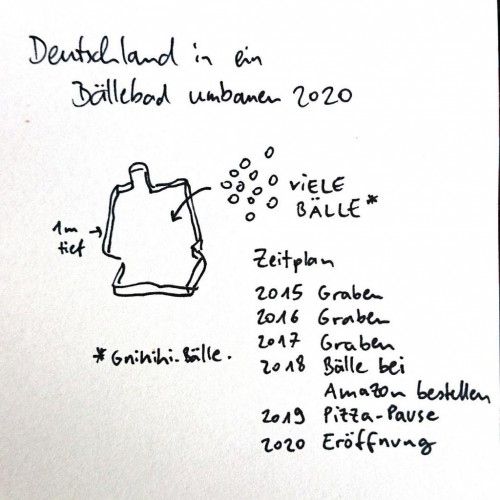 Deutschland in ein
Bällebad umbauen 2020
VIELE
BÄLLE*
1m
tief
Zeitplan
2015 Graben
2016 Graben
2017 Graben
2018 Bälle bei
Amazon bestellen
2019 Pizza-Pause
2020 Eröffnung
*Gnihihi-Bälle.